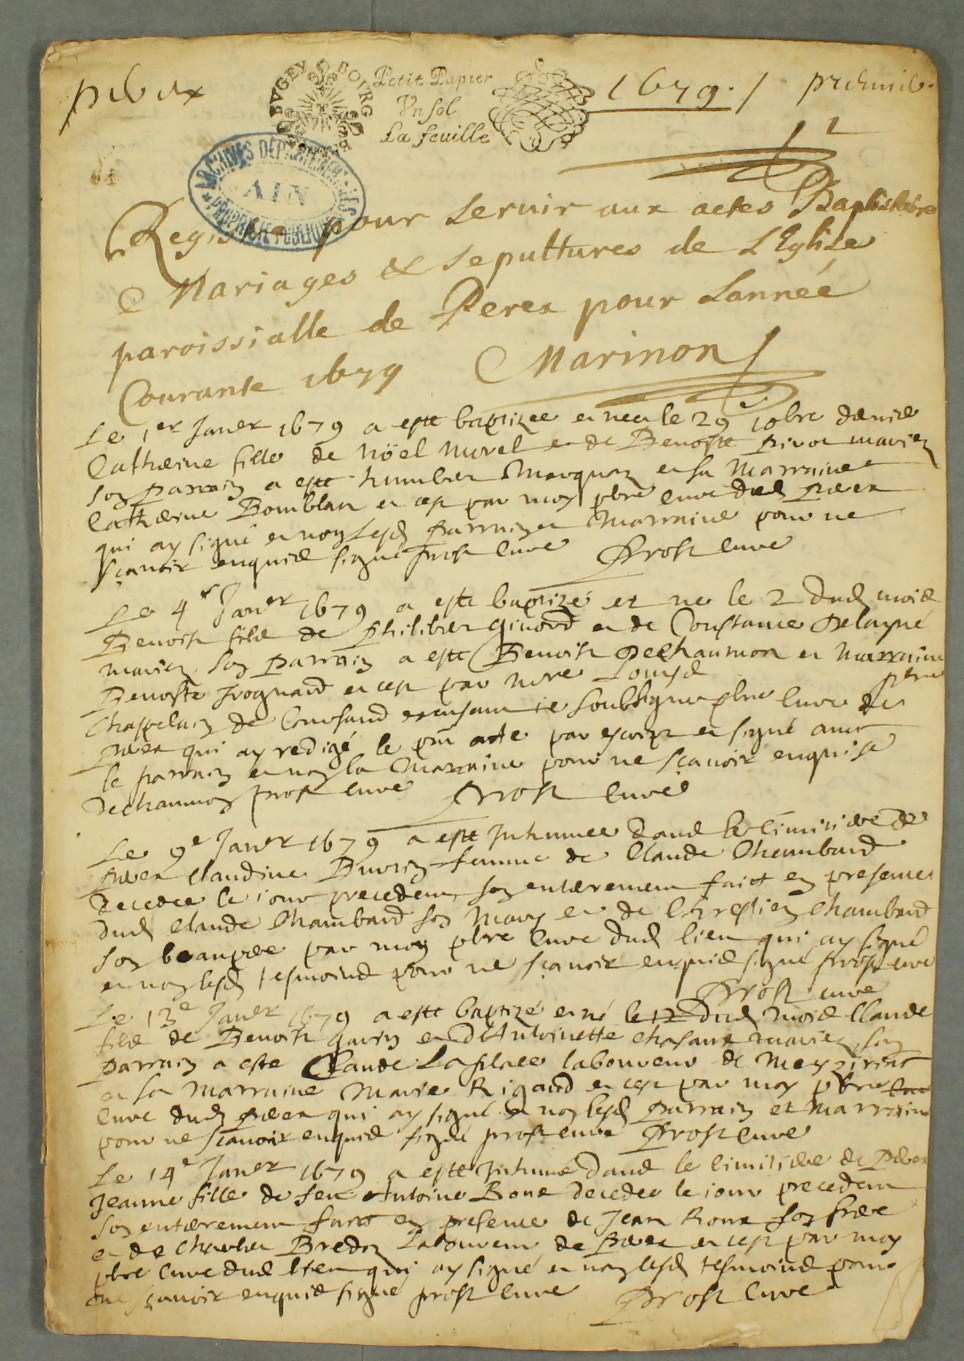 perex
BVGEY BOURG
Petit Papier
Vn sol
La feuille
1679 . / premier
ARCHIVES DÉPARTEMENTALES
AIN
PROPRIÉTÉ PUBLIQUE
Registre pour seruir aux actes Baptistaires
Mariages & sepultures de L'Eglise
paroissialle de Perex pour Lannée
Courante 1679 Marinon
Le 1er Janer 1679 a este baptizee et nee le 29 xobre dernier
Catherine fille de Nöel Morel et de Benoiste mariez
son parrain a este humbert et sa Marraine
Catherine Bomblan et ce par moy pbre cure dud perex
qui ay signé et non lesd parrain et Marraine pour ne
sçauoir enquis signé prost cure Prost cure
Le 4e Janer 1679 a este baptizé et ne le 2 dud mois
Benoist fils de philibert et de Constance
mariez son parrain a este Benoist Dechaumon et marraine
Benoiste et ce par
Chappelain de soubsigne pbre cure de
perex qui ay redigé le pnt acte par escript et signé auec
le parrain et non la Marraine pour ne sçauoir enquise
Dechaumon prost cure Prost cure
Le 9e Janer 1679 a este Inhumee dans le cimitiere de
perex Claudine femme de Claude Chambard
decedee le iour precedent son enterrement faict en presence
dud Claude Chambard son mary et de Chambard
son beaupere par moy pbre cure dud lieu qui ay signé
et non lesd tesmoins pour ne sçauoir enquis signé prost cure
Prost cure
Le 13e Janer 1679 a este baptizé et né le 12 dud mois Claude
fils de Benoist et d'Antoinette mariez son
parrain a este Claude laboureur de Meyziriat
et sa marraine Marie Rigaud et ce par moy pbre
cure dud perex qui ay signé et non lesd parrain et marraine
pour ne sçauoir enquis signé prost cure Prost cure
Le 14e Janer 1679 a este Inhumé dans le cimitiere de perex
Jeanne fille de feu Antoine Roux decedee le iour precedent
son enterrement faict en presence de Jean Roux son frere
et de laboureur de perex et ce par moy
pbre cure dud lieu qui ay signé et non lesd tesmoins pour
ne sçauoir enquis signé prost cure Prost cure